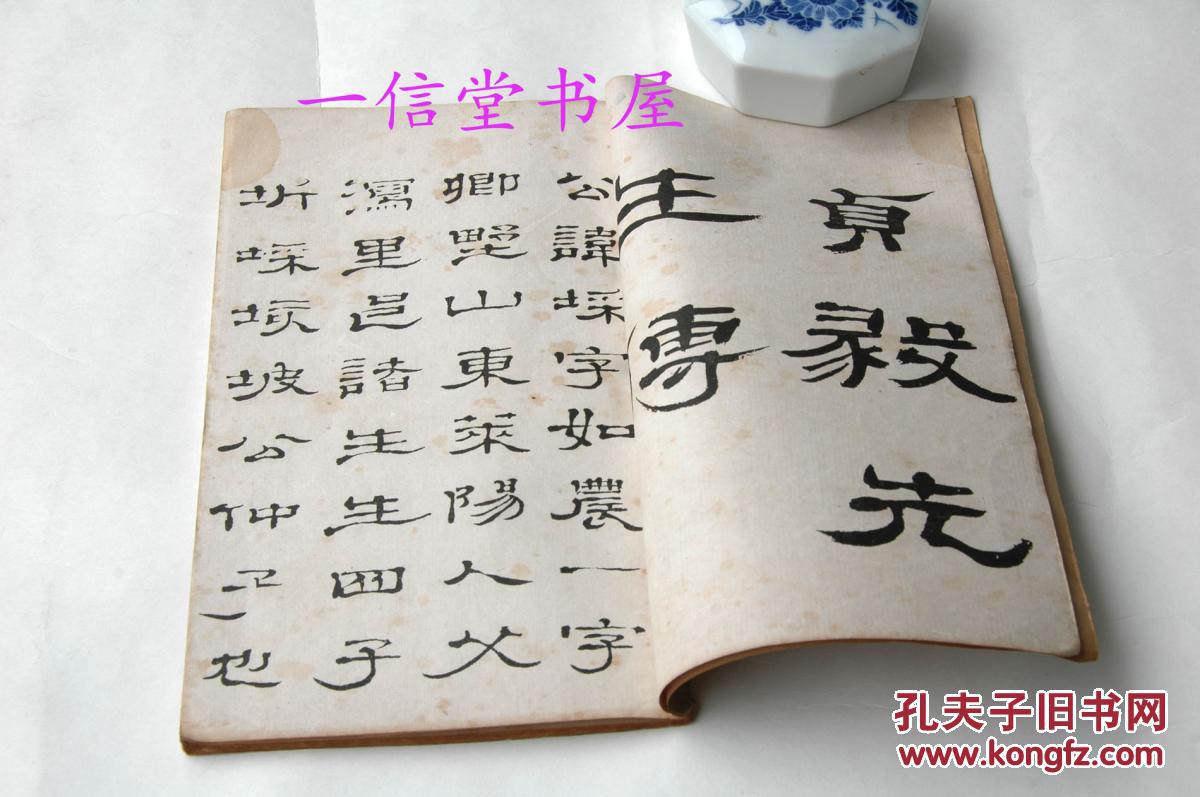 一信堂书屋
貞毅先
生傳
公諱埰字如農一字
卿墅山東萊陽人父
瀉里邑諸生生四子
圻埰垓坡公仲也
孔夫子旧书网
www.kongfz.com